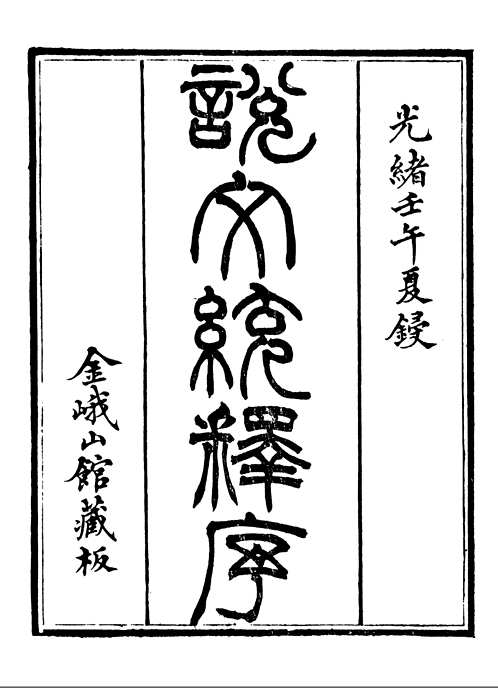 光緒壬午夏鋟
說文統釋序
金峨山館藏板